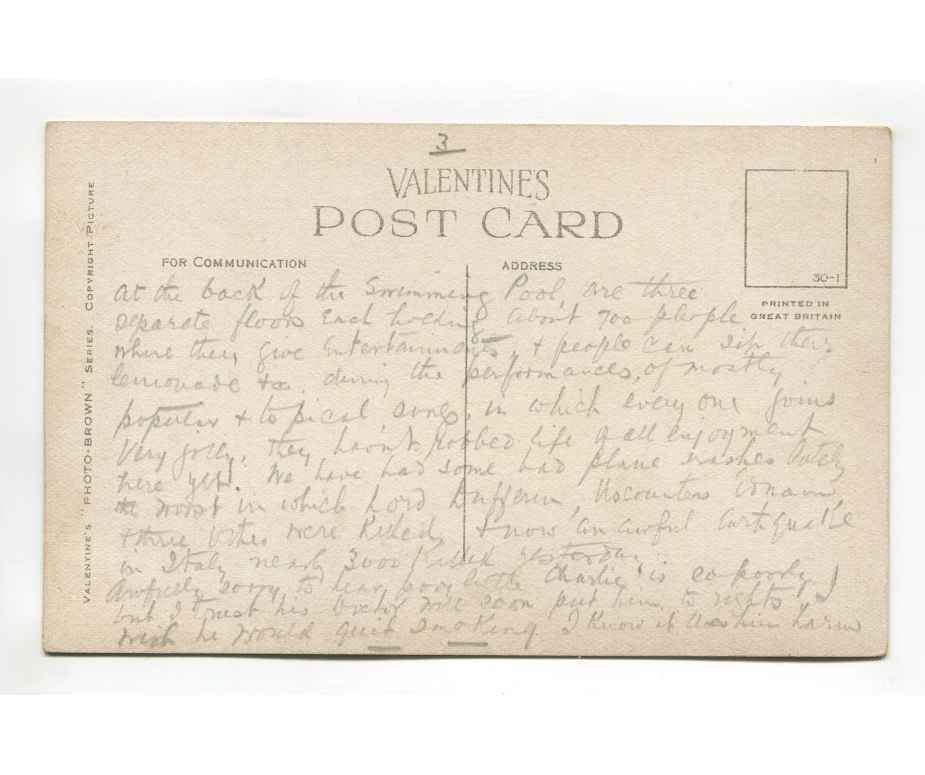 3
VALENTINE'S
POST CARD
FOR COMMUNICATION
ADDRESS
30-1
PRINTED IN
GREAT BRITAIN
VALENTINE'S "PHOTO-BROWN" SERIES. COPYRIGHT PICTURE
At the back of the Swimming Pool, are three
separate floors each holding about 700 people
where they give Entertainments, & people can sip their
lemonade &c. during the performances, of mostly
popular & topical songs, in which every one joins
Very jolly, they havn't robbed life of all enjoyment
here yet. We have had some bad plane crashes lately
the worst in which Lord Dufferin, Viscountess Ednam,
& three others were killed, & now an awful Earthquake
in Italy nearly 3000 killed yesterday.
Awfully sorry to hear poor little Charlie is so poorly,
but I trust his Doctor will soon put him to rights, I
wish he would quit smoking I know it does him harm